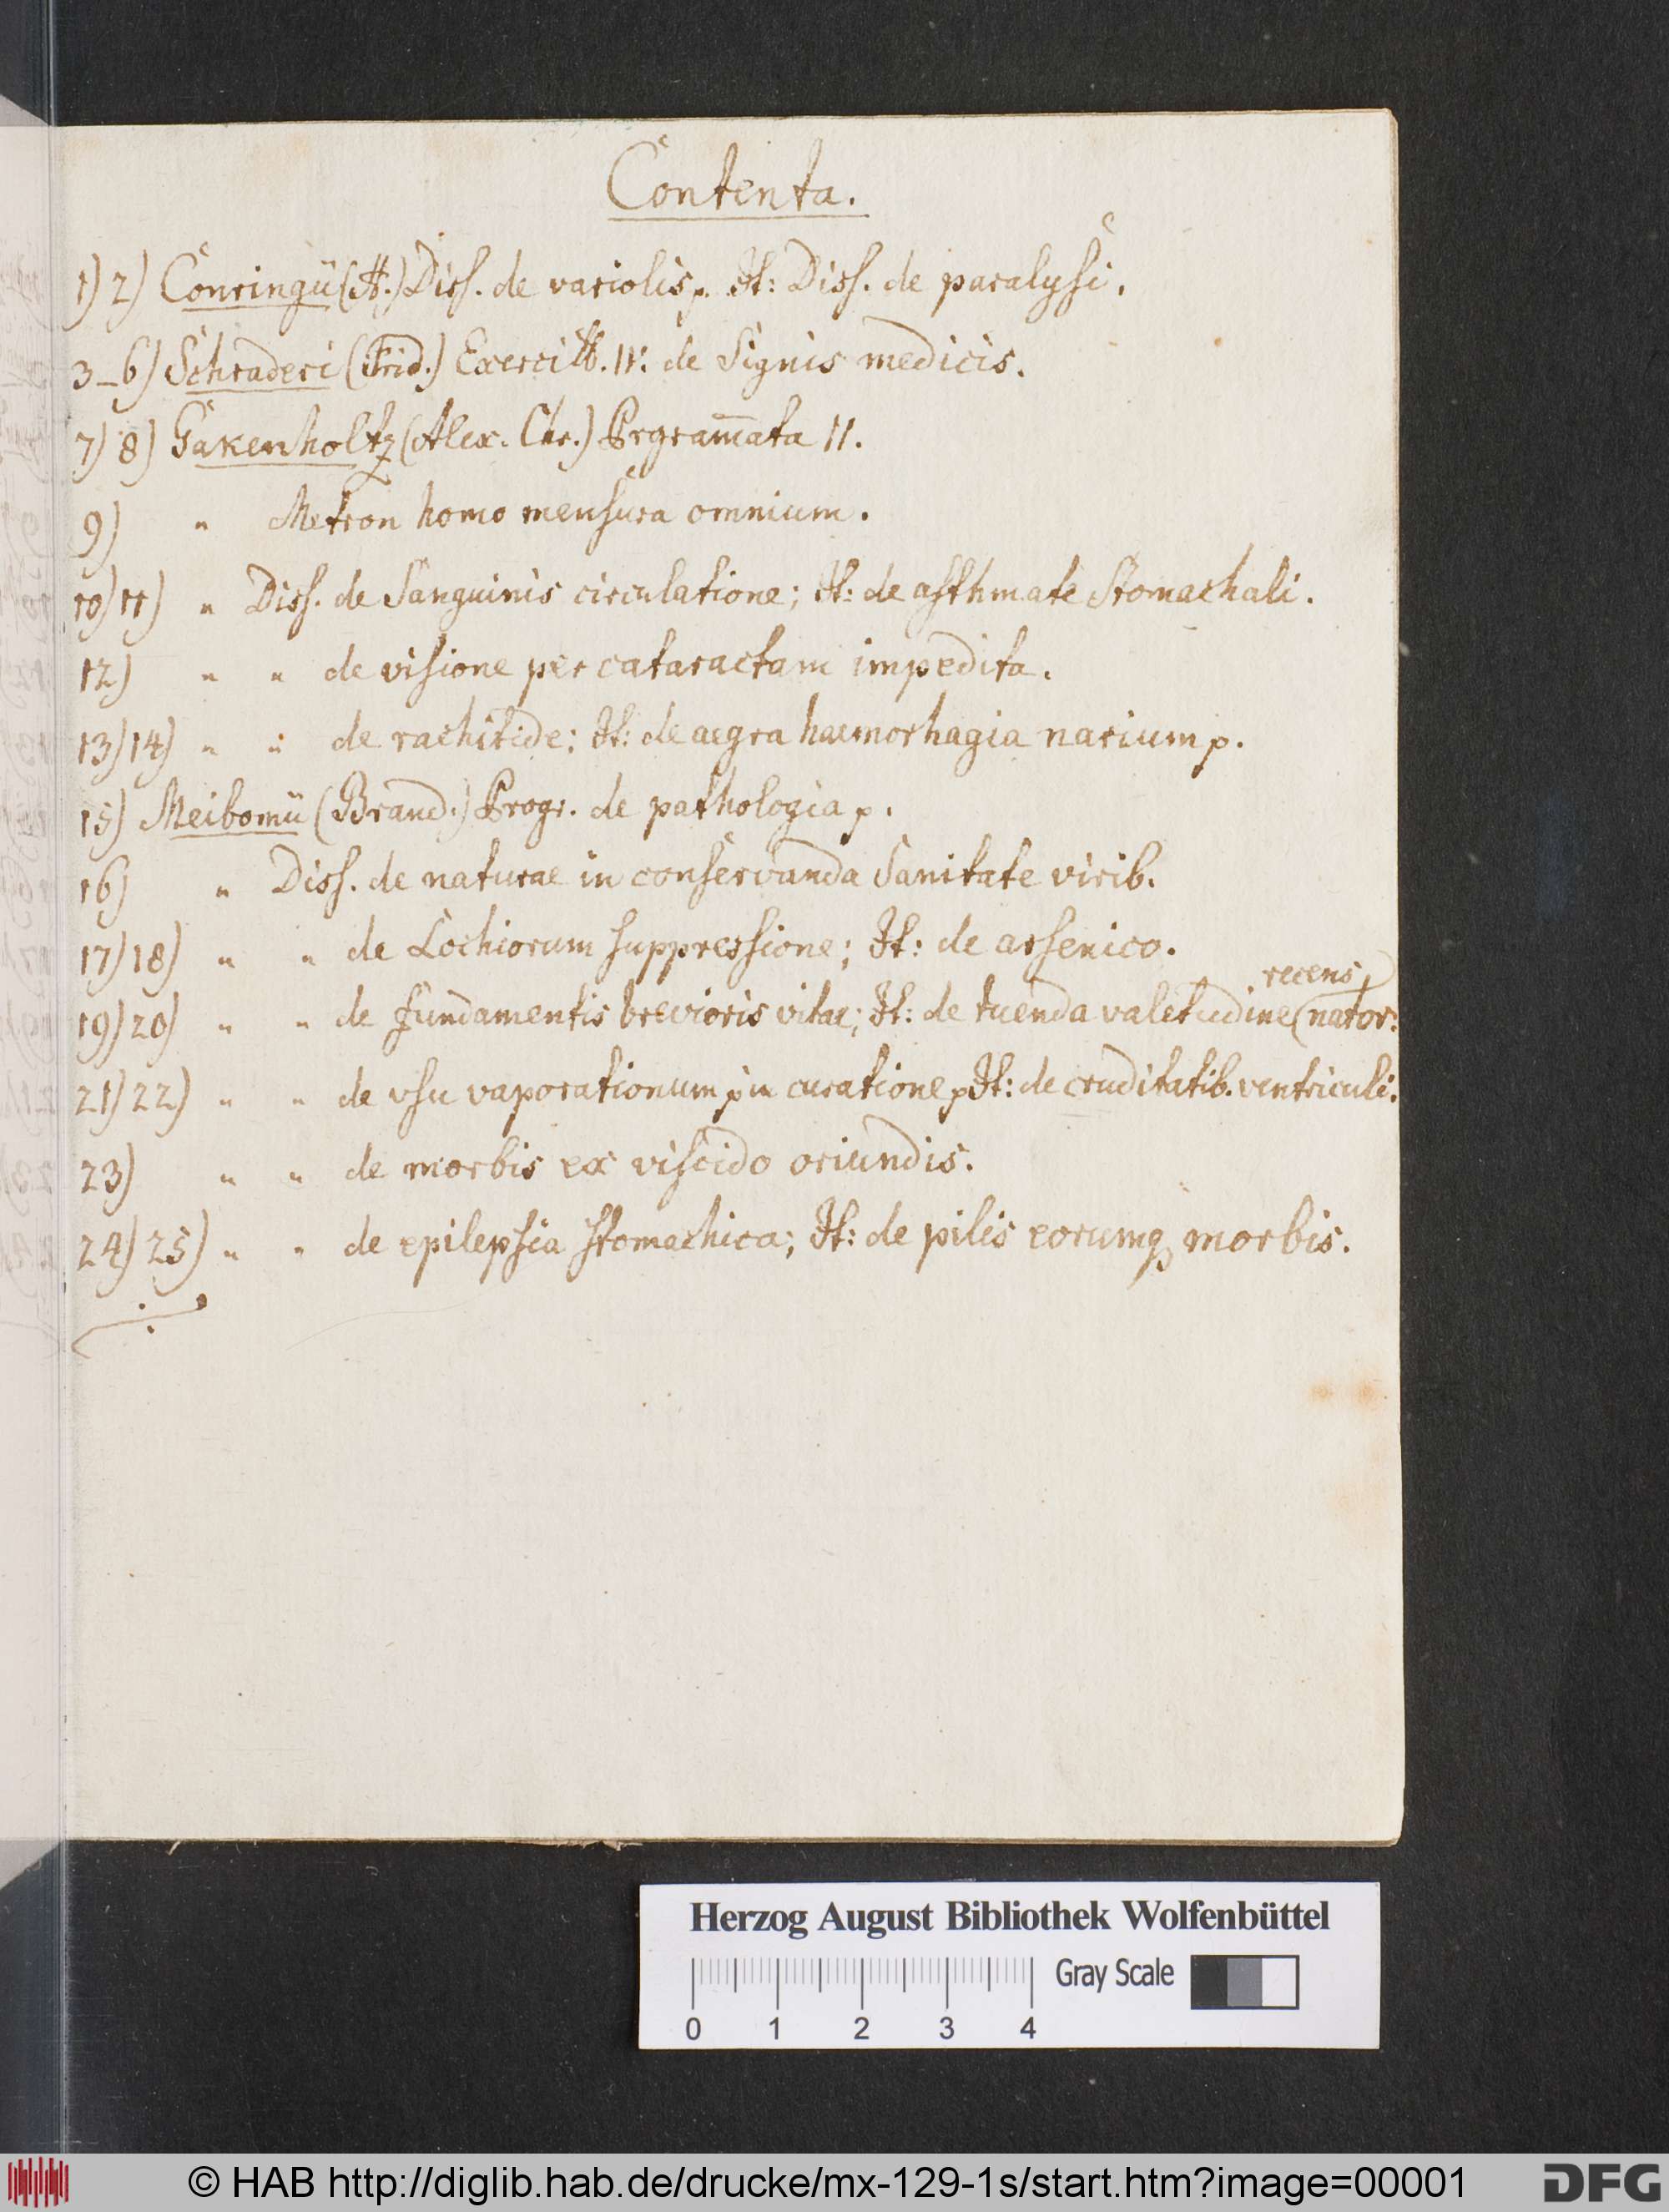 Contenta.
1) 2) Conringii (H.) Diss. de variolis p. It: Diss. de paralysi.
3_6) Schraderi (Frid.) Exercitt. IV. de Signis medicis.
7) 8) Gakenholtz (Alex. Chr.) Prgram̄ata II.
9) " Metron homo mensura omnium.
10) 11) " Diss. de Sanguinis circulatione; It: de asthmate Stomachali.
12) " " de visione per cataractam impedita.
13) 14) " " de rachitide; It: de aegra haemorhagia narium p.
15) Meibomii (Brand.) Progr. de pathologia p.
16) " Diss. de naturae in conservanda Sanitate virib.
17) 18) " " de Lochiorum suppressione; It: de arsenico.
recens
19) 20) " " de fundamentis brevioris vitae; It: de tuenda valetudine (nator:
21) 22) " " de vsu vaporationum p in curatione p It: de cruditatib. ventriculi.
23) " " de morbis ex viscido oriundis.
24) 25) " " de epilepsia stomachica; It: de pilis eorumq; morbis.
Herzog August Bibliothek Wolfenbüttel
Gray Scale
0 1 2 3 4
© HAB http://diglib.hab.de/drucke/mx-129-1s/start.htm?image=00001
DFG